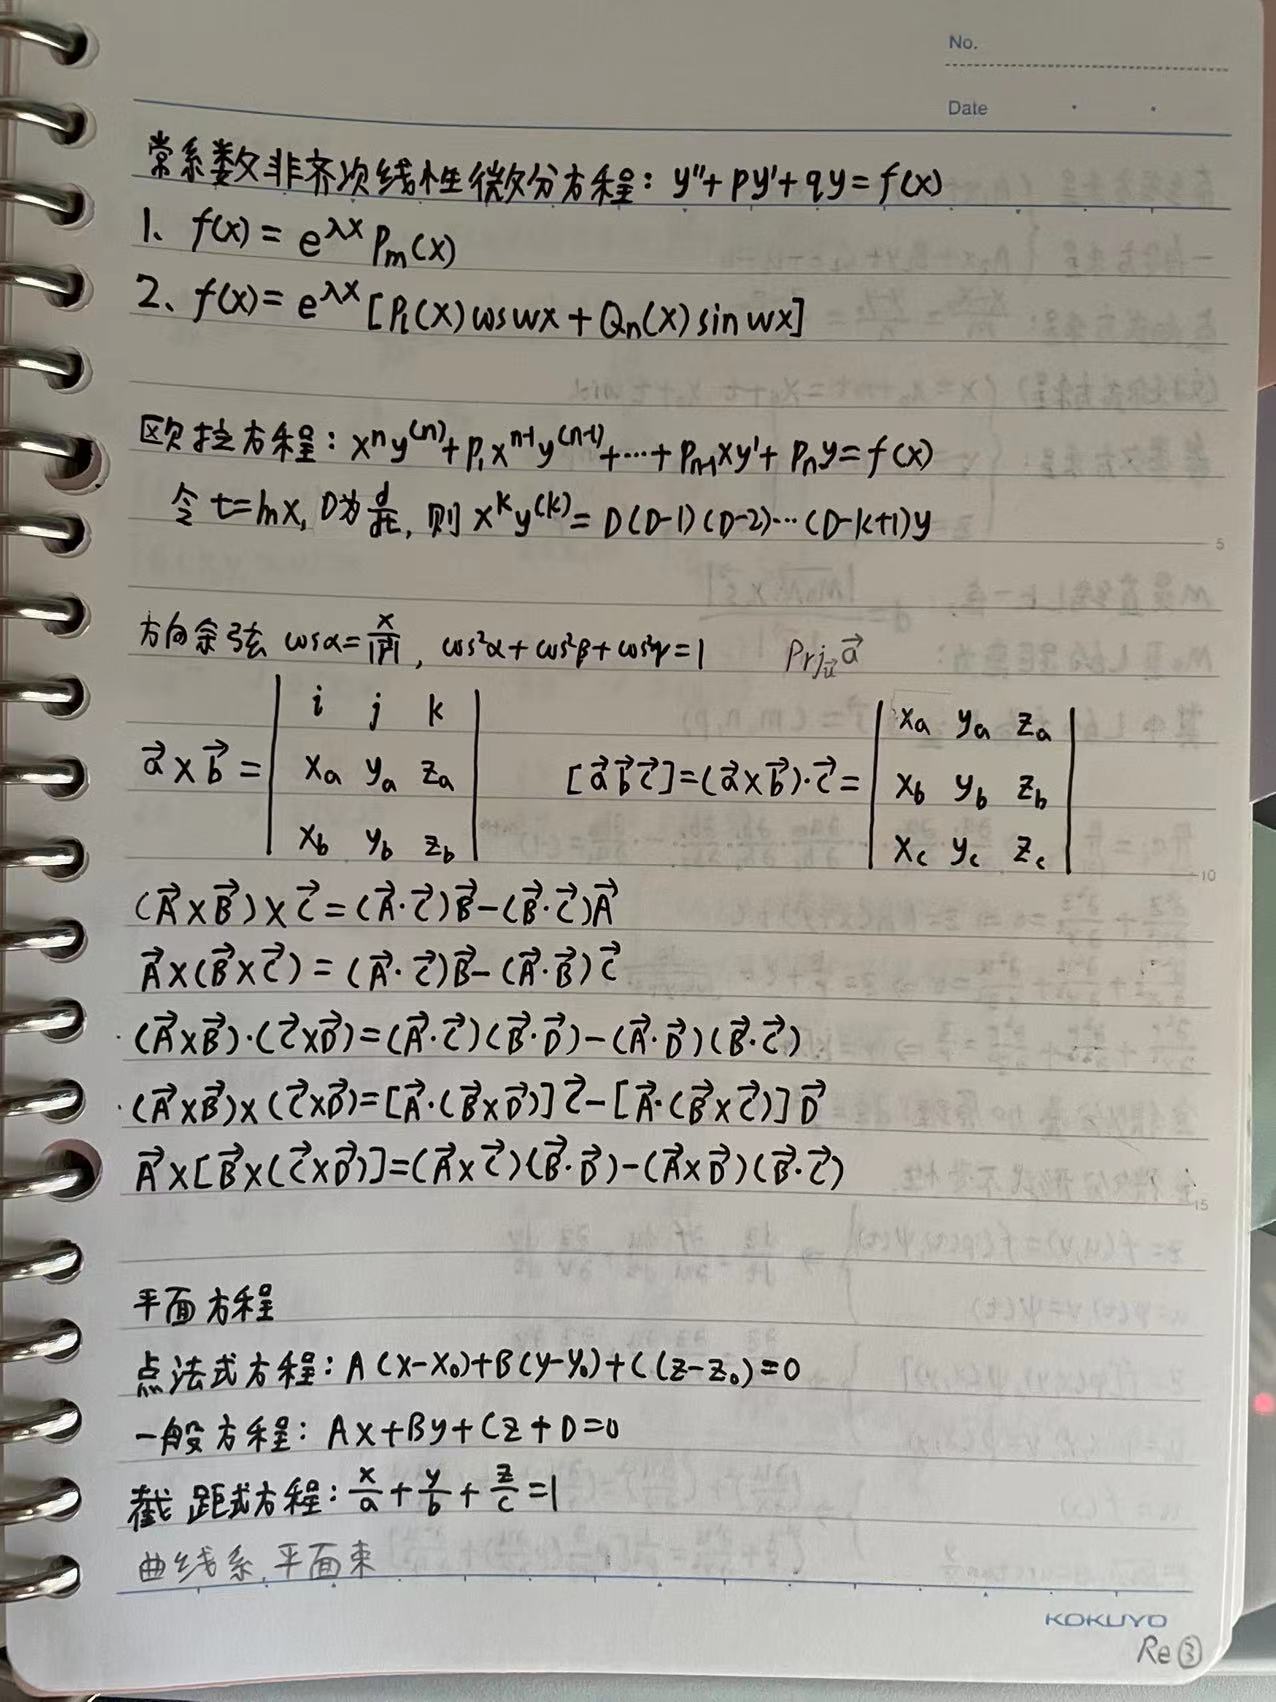 No.
Date
常系数非齐次线性微分方程: y''+py'+qy=f(x)
1、f(x)=e^{λx}P_m(x)
2、f(x)=e^{λx}[P_l(x)cosωx+Q_n(x)sinωx]
欧拉方程: x^n y^{(n)}+p_1x^{n-1}y^{(n-1)}+⋯+p_{n-1}xy'+p_ny=f(x)
令t=lnx, D为\frac{d}{dt}, 则x^k y^{(k)}=D(D-1)(D-2)⋯(D-k+1)y
方向余弦 cosα=\frac{x}{|\vec{r}|}, cos²α+cos²β+cos²γ=1 Prj_{\vec{u}}\vec{a}
\vec{a}×\vec{b}=\begin{vmatrix} i & j & k \\ x_a & y_a & z_a \\ x_b & y_b & z_b \end{vmatrix} [\vec{a}\vec{b}\vec{c}]=(\vec{a}×\vec{b})·\vec{c}=\begin{vmatrix} x_a & y_a & z_a \\ x_b & y_b & z_b \\ x_c & y_c & z_c \end{vmatrix}
(\vec{A}×\vec{B})×\vec{C}=(\vec{A}·\vec{C})\vec{B}-(\vec{B}·\vec{C})\vec{A}
\vec{A}×(\vec{B}×\vec{C})=(\vec{A}·\vec{C})\vec{B}-(\vec{A}·\vec{B})\vec{C}
·(\vec{A}×\vec{B})·(\vec{C}×\vec{D})=(\vec{A}·\vec{C})(\vec{B}·\vec{D})-(\vec{A}·\vec{D})(\vec{B}·\vec{C})
·(\vec{A}×\vec{B})×(\vec{C}×\vec{D})=[\vec{A}·(\vec{B}×\vec{D})]\vec{C}-[\vec{A}·(\vec{B}×\vec{C})]\vec{D}
\vec{A}×[\vec{B}×(\vec{C}×\vec{D})]=(\vec{A}×\vec{C})(\vec{B}·\vec{D})-(\vec{A}×\vec{D})(\vec{B}·\vec{C})
5
10
15
平面方程
点法式方程: A(x-x_0)+B(y-y_0)+C(z-z_0)=0
一般方程: Ax+By+Cz+D=0
截距式方程: \frac{x}{a}+\frac{y}{b}+\frac{z}{c}=1
曲线系,平面束
KOKUYO
Re③